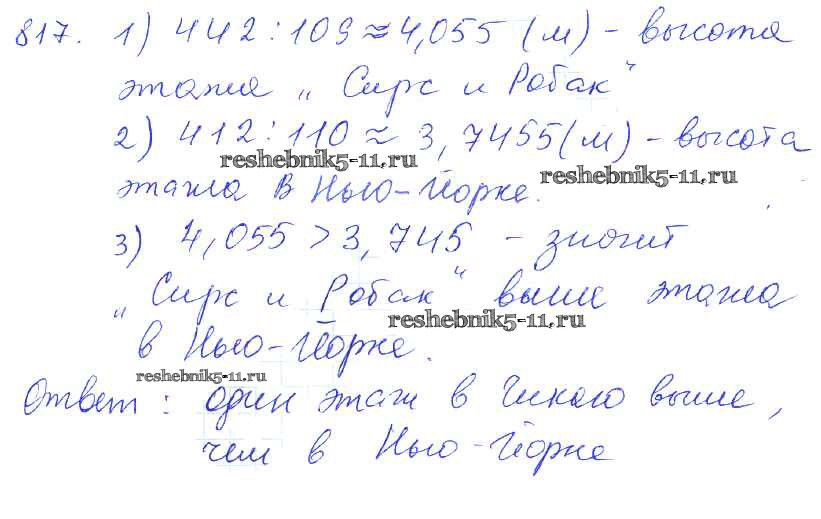 817. 1) 442 : 109 ≈ 4,055 (м) – высота
этажа „Сирс и Робак“
2) 412 : 110 ≈ 3,7455 (м) – высота
reshebnik5-11.ru
reshebnik5-11.ru
этажа в Нью-Йорке.
3) 4,055 > 3,745 – значит
„Сирс и Робак“ выше этажа
reshebnik5-11.ru
в Нью-Йорке.
reshebnik5-11.ru
Ответ: один этаж в Чикаго выше,
чем в Нью-Йорке